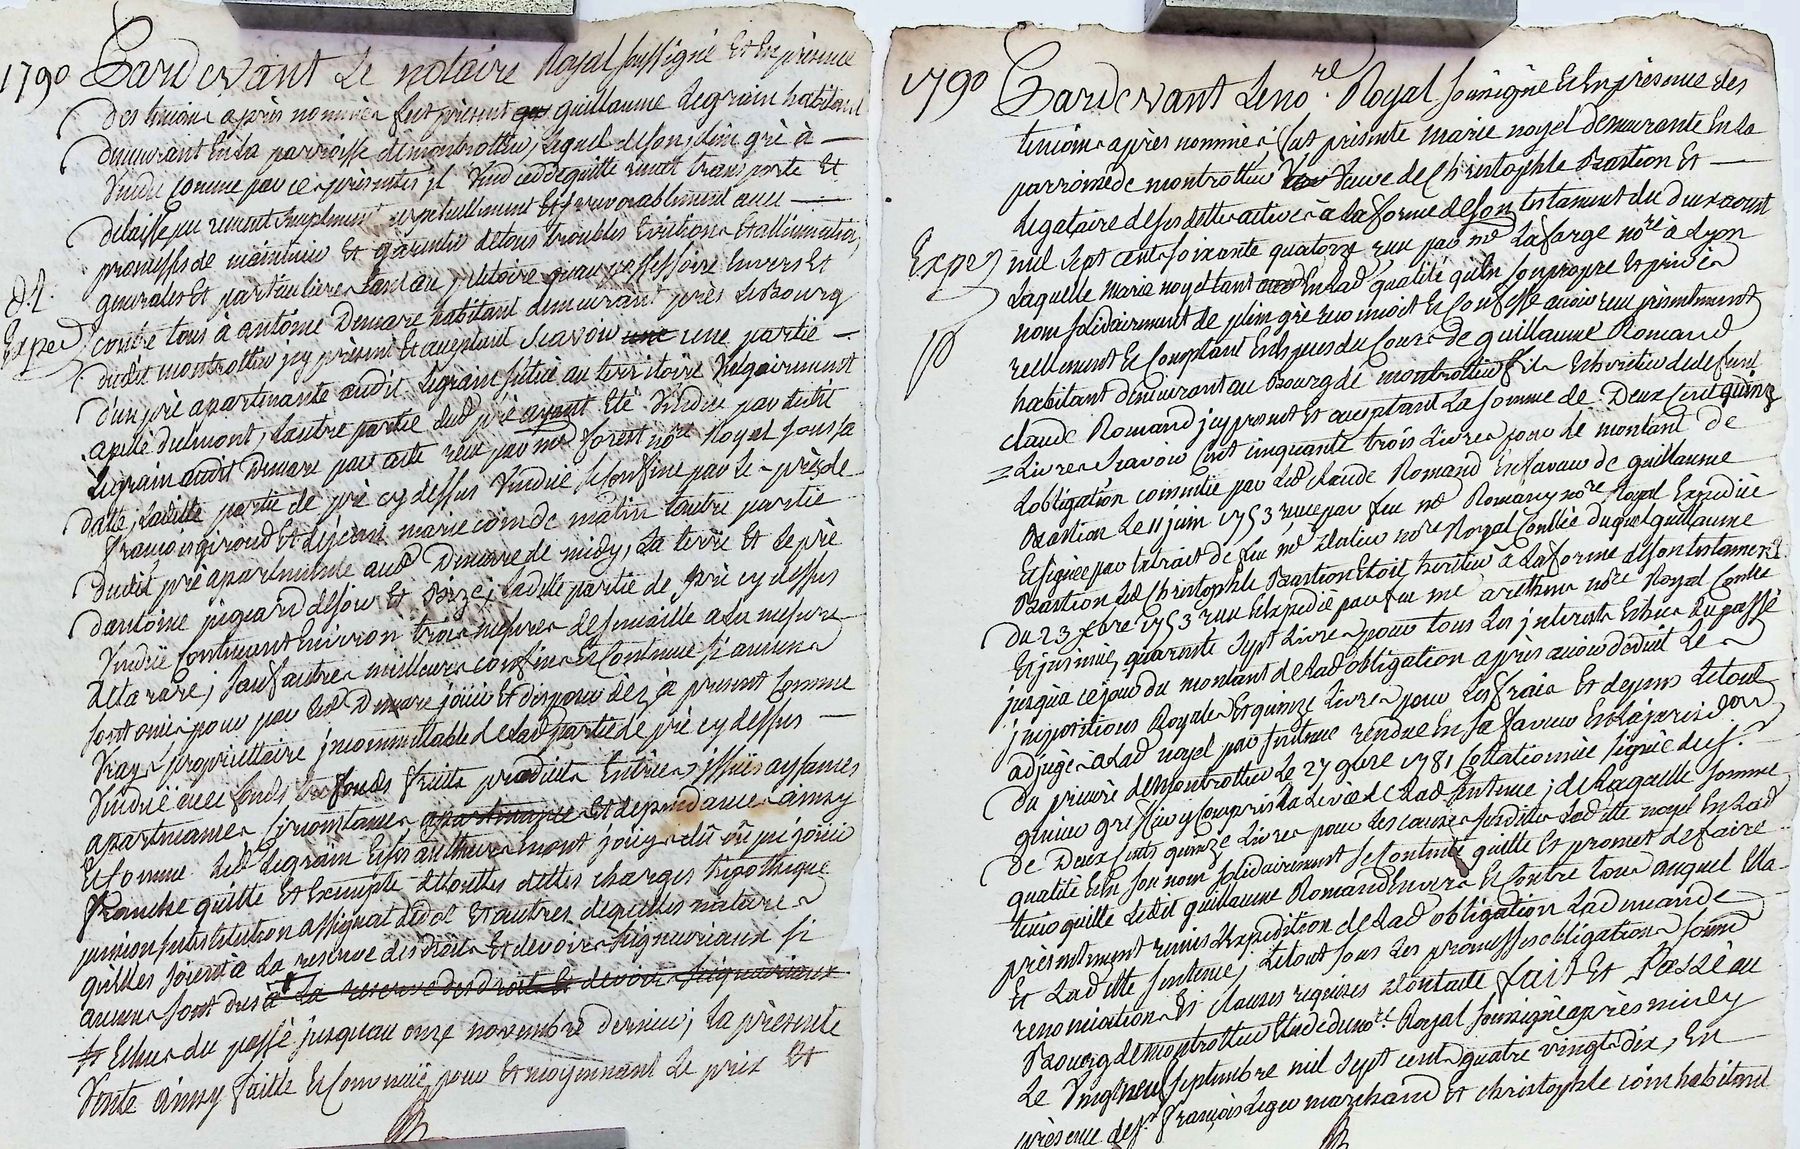 1790 Pardevant Le notaire Royal soussigné Et En présence
des temoins après nommés fut présent guillaume Legrain habitant
demeurant En la parroisse de montrottier, Lequel de son plein gré à
Vendu Comme par ces présentes il Vend cedde quitte remet transporte Et
delaisse purement simplement perpetuellement Et irrevocablement avec
promesses de maintenir Et garentir de tous troubles Evictions Et allienations
generales Et particulieres tant au petitoire qu'au possessoire Envers Et
contre tous à antoine Demare habitant demeurant près Le Bourg
dudit montrottier icy présent Et acceptant Scavoir une une partie
d'un pré apartenante audit Legrain située au territoire
apellé Dumont, Lautre partie dud pré ayant Eté Vendue par ledit
Legrain audit Demare par acte reçu par me forest nore Royal sous sa
datte, Ladite partie de pré cy dessus Vendue se Confine par Le pré de
françois giroud Et de marie comde matin Lautre partie
dudit pré apartenante aud Demare de midy, La terre Et Le pré
d'antoine de soir Et Bize, Ladite partie de pré cy dessus
Vendue Contenant Environ trois mesures de semaille a la mesure
de tarare, sauf autres meilleurs confins Et Contenue si aucuns
sont omis pour par Led Demare jouir Et disposer dès à present Comme
Vray propriettaire incommuttable de Lad partie de pré cy dessus
Vendue avec fonds fonds fruits produits Entrées, issües aysances
apartenances Circonstances apartenances Et dependances ainsy
Et Comme Led Legrain Et ses autheurs En ont jouy dû ou pu jouir
franche quitte Et Exempte de touttes dettes charges hipotheques
pension substitution assignat dedot Et autres de quelles natures
quelles soient à La reserve des droits Et devoirs seigneuriaux si
aucuns sont dus à La reserve des droits Et devoirs seigneuriaux
Echus du passé jusqu'au onze novembre dernier; La présente
Vente ainsy faitte Et Convenüe, pour Et moyennant Le prix Et
d.t.
Exped
1790 Pardevant Le no.re Royal soussigné Et En présence des
temoins après nommés fut présente marie noyel demeurante En La
parroisse de montrottier Veuve de Christophle Bastion Et
Legataire de ses dettes actives à La forme de son testament du deux aoust
mil sept cent soixante quatorze reçu par me Lafarge nore à Lyon
Laquelle marie noyel tant En Lad qualité qu'En son propre Et privé
nom solidairement de plein gré reconnoit Et Confesse avoir reçu présentement
reellement Et Comptant En Espèces du Cours de guillaume Romand
habitant demeurant au Bourg de montrottier fils Et heritier de defunt
claude Romand icy présent Et acceptant La somme de Deux Cent quinze
Livres Scavoir Cent cinquante trois Livres pour Le montant de
Lobligation consentie par Led Claude Romand En faveur de guillaume
Bastion Le 11 juin 1753 reçue par feu me Romany nore Royal Expediée
Et signée par Extrait de feu me nore Royal Conlbie duquel guillaume
Bastion Led Christophle Bastion Etoit heritier à La forme de son testament
du 23 xbre 1753 reçu Et Expedié par feu me nore Royal
quarante sept Livres pour tous Les interests Echus du passé
jusqu'a ce jour du montant de Lad obligation après avoir deduit Les
impositions Royales Et quinze Livres pour Les frais Et depens Le tout
adjugé à Lad noyel par sentence rendue En sa faveur En La jurisdon
du prieuré de montrottier Le 27 9bre 1781 Collationnée signée de sr
greffier y Compris La Levée de Lad sentence; de Laquelle somme
de Deux Cents quinze Livres pour Les causes susdites Ladite noyel En Lad
qualité Et En son nom solidairement se Contente quitte Et promet de faire
tenir quitte Ledit guillaume Romand Envers Et Contre tous auquel Elle a
présentement remis Expedition de Lad obligation Lad
Et Ladite sentence, Le tout sous Les promesses obligations soumon
renonciations Et clauses requises dont acte fait Et Passé au
Bourg de montrottier Etude dunore Royal soussigné après midy
Le Vingtneuf septembre mil sept cent quatre vingt dix, En
présence de sr françois Leger marchand Et christophle Coin habitant
Exped